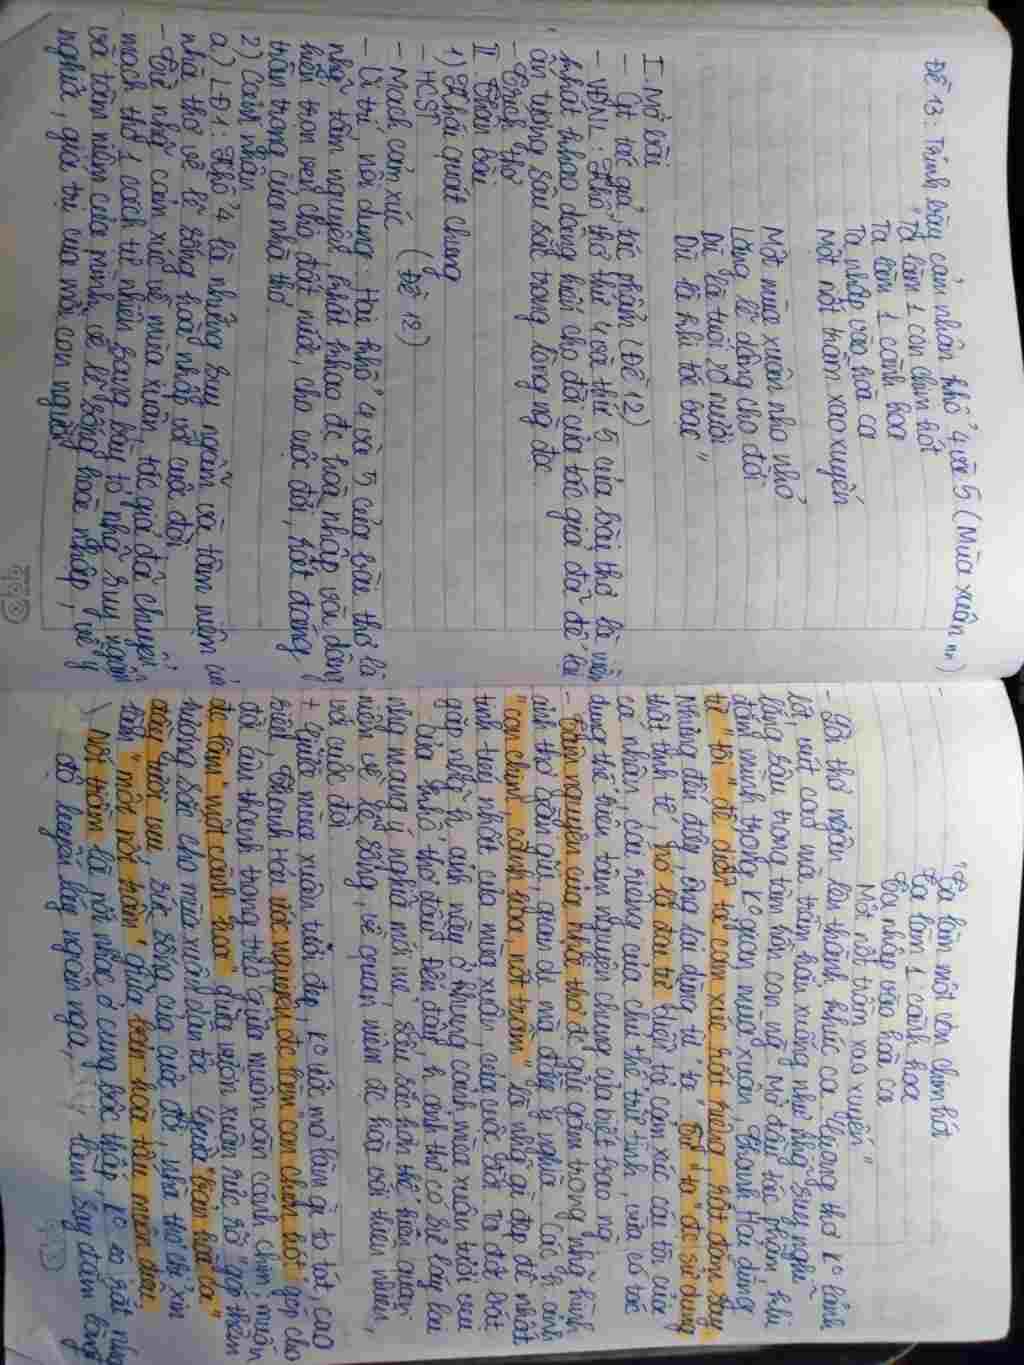 Đề 13: Trình bày cảm nhận khổ 4 và 5 (Mùa xuân nn)
"Ta làm 1 con chim hót
Ta làm 1 cành hoa
Ta nhập vào hòa ca
Một nốt trầm xao xuyến
Một mùa xuân nho nhỏ
Lặng lẽ dâng cho đời
Dù là tuổi 20 mươi
Dù là khi tóc bạc"
I. Mở bài
- Gt tác giả, tác phẩm (Đề 12)
- VĐNL: Khổ thơ thứ 4 và thứ 5 của bài thơ là niềm
khát khao dâng hiến cho đời của tác giả đã để lại
ấn tượng sâu sắc trong lòng ng đọc
- Trích thơ
II. Thân bài
1) Khái quát chung
- HCST
- Mạch cảm xúc (Đề 12)
- Vị trí, nội dung: Hai khổ 4 và 5 của bài thơ là
những tâm nguyện, khát khao đc hòa nhập và dâng
hiến trọn vẹn cho đất nước, cho cuộc đời, rất đáng
trân trọng của nhà thơ
2) Cảm nhận
a) LĐ1: Khổ 4 là những suy ngẫm và tâm niệm của
nhà thơ về lẽ sống hòa nhập với cuộc đời
- Từ những cảm xúc về mùa xuân, tác giả đã chuyển
mạch thơ 1 cách tự nhiên sang bày tỏ những suy ngẫm
và tâm niệm của mình về lẽ sống hòa nhập, về ý
nghĩa, giá trị của mỗi con người
"Ta làm một con chim hót
Ta làm 1 cành hoa
Ta nhập vào hòa ca
Một nốt trầm xao xuyến"
- Lời thơ ngân lên thành khúc ca. Giọng thơ ko lảnh
lót, vút cao mà trầm lắng xuống như những suy nghĩ
lắng sâu trong tâm hồn con ng. Mở đầu tác phẩm khi
đắm mình trong ko gian mùa xuân, Thanh Hải dùng
từ "tôi" để diễn tả cảm xúc rất riêng, rất đắm say
Nhưng đến đây, ông lại dùng từ "ta". Từ "ta" đc sử dụng
thật tinh tế, nó là đại từ biểu lộ cảm xúc cái tôi của
cá nhân, cái riêng của chủ thể trữ tình, vừa có tác
dụng thể hiện tâm nguyện chung của biết bao ng
- Tâm nguyện của nhà thơ đc gửi gắm trong những hình
ảnh thơ gần gũi, giản dị mà đầy ý nghĩa. Các h. ảnh
"con chim, cành hoa, nốt trầm" là những gì đẹp đẽ nhất
tinh túy nhất của mùa xuân, của cuộc đời. Ta đã bắt
gặp những h. ảnh này ở khung cảnh mùa xuân tươi vui
của khổ thơ đầu. Đến đây, h. ảnh thơ có sự láy lại
nhưng mang ý nghĩa mới mẻ, sâu sắc hơn thể hiện quan
niệm về lẽ sống, về quan niệm đc hòa với thiên nhiên,
với cuộc đời
+ Giữa mùa xuân tươi đẹp, ko ước mơ làm gì to tát, cao
siêu, Thanh Hải ước nguyện đc làm "con chim hót" góp cho
đời âm thanh trong trẻo giữa muôn vàn cánh chim muốn
đc làm "một cành hoa" giữa vườn xuân rực rỡ góp thêm
hương sắc cho mùa xuân dân tộc. Giữa "bản hòa ca"
đầy tươi vui, sức sống của cuộc đời nhà thơ chỉ xin
làm "một nốt trầm" giữa bản hòa tấu muôn điệu
Nốt trầm là nốt nhạc ở cung bậc thấp, ko so giết như
để huyên náo người nghe, làm say đắm lòng